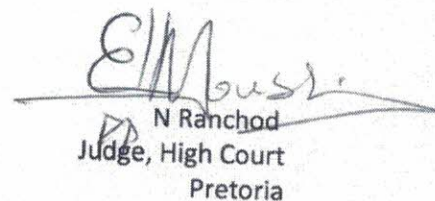 N Ranchod
PP
Judge, High Court
Pretoria